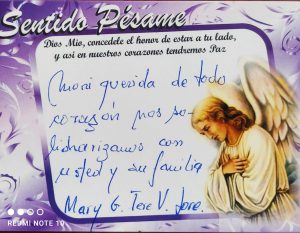 Sentido Pésame
Dios Mio, concedele el honor de estar a tu lado,
y asi en nuestros corazones tendremos Paz
querida de todo
corazón nos so-
lidarizamos con
usted y su familia
Mary G. Tere V.
REDMI NOTE 10